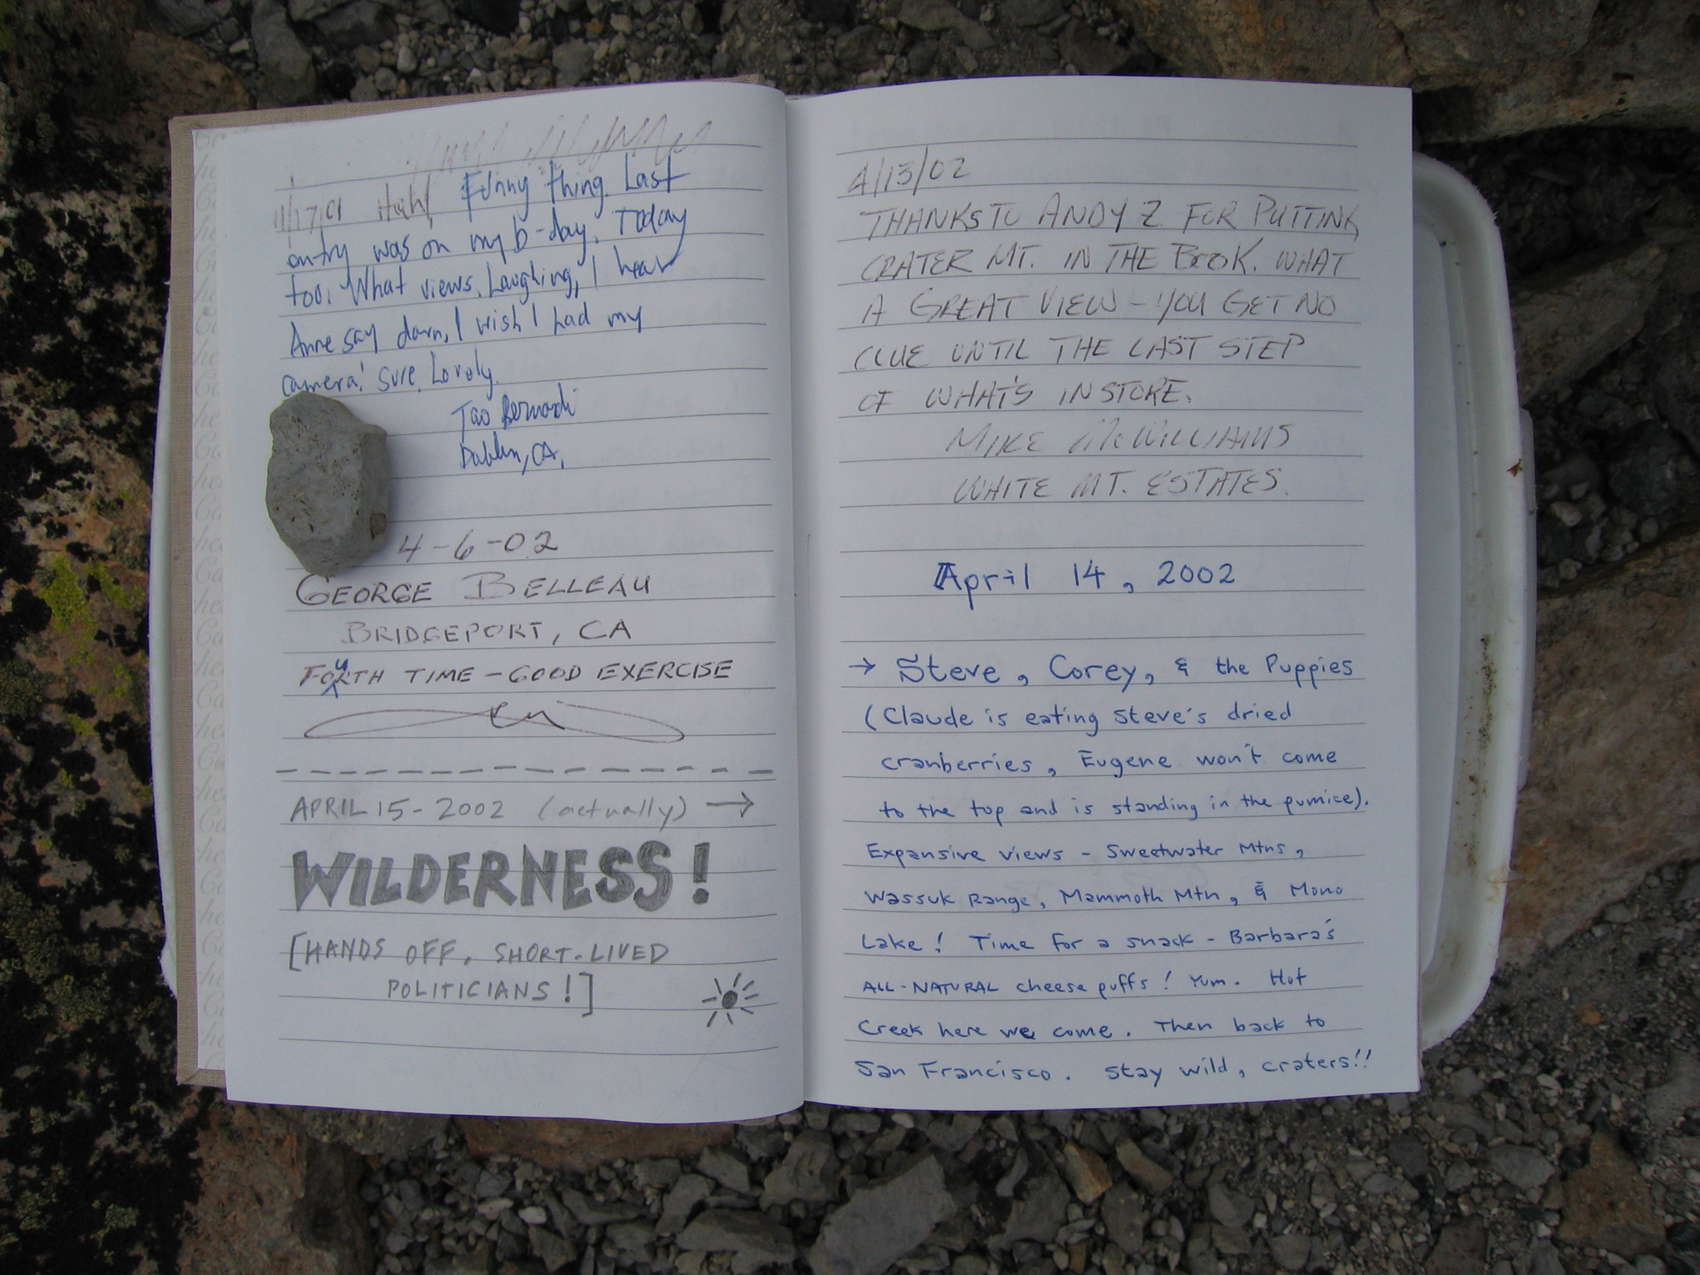 11/17/01 Hah! Funny thing. Last
entry was on my b-day. Today
too. What views. Laughing, I hear
Anne say darn, I wish I had my
camera! Sure. Lovely.
Dublin, CA.
4-6-02
GEORGE BELLEAU
BRIDGEPORT, CA
FOURTH TIME - GOOD EXERCISE
APRIL 15 - 2002 (actually) →
WILDERNESS!
[HANDS OFF, SHORT-LIVED
POLITICIANS!]
4/13/02
THANKS TO ANDY Z FOR PUTTING
CRATER MT. IN THE BOOK. WHAT
A GREAT VIEW - YOU GET NO
CLUE UNTIL THE LAST STEP
OF WHAT'S IN STORE.
MIKE McWILLIAMS
WHITE MT. ESTATES.
April 14, 2002
→ Steve, Corey, & the Puppies
(Claude is eating Steve's dried
cranberries, Eugene won't come
to the top and is standing in the pumice).
Expansive views - Sweetwater Mtns,
Wassuk Range, Mammoth Mtn, & Mono
Lake! Time for a snack - Barbara's
ALL-NATURAL cheese puffs! Yum. Hot
Creek here we come. Then back to
San Francisco. Stay wild, craters!!